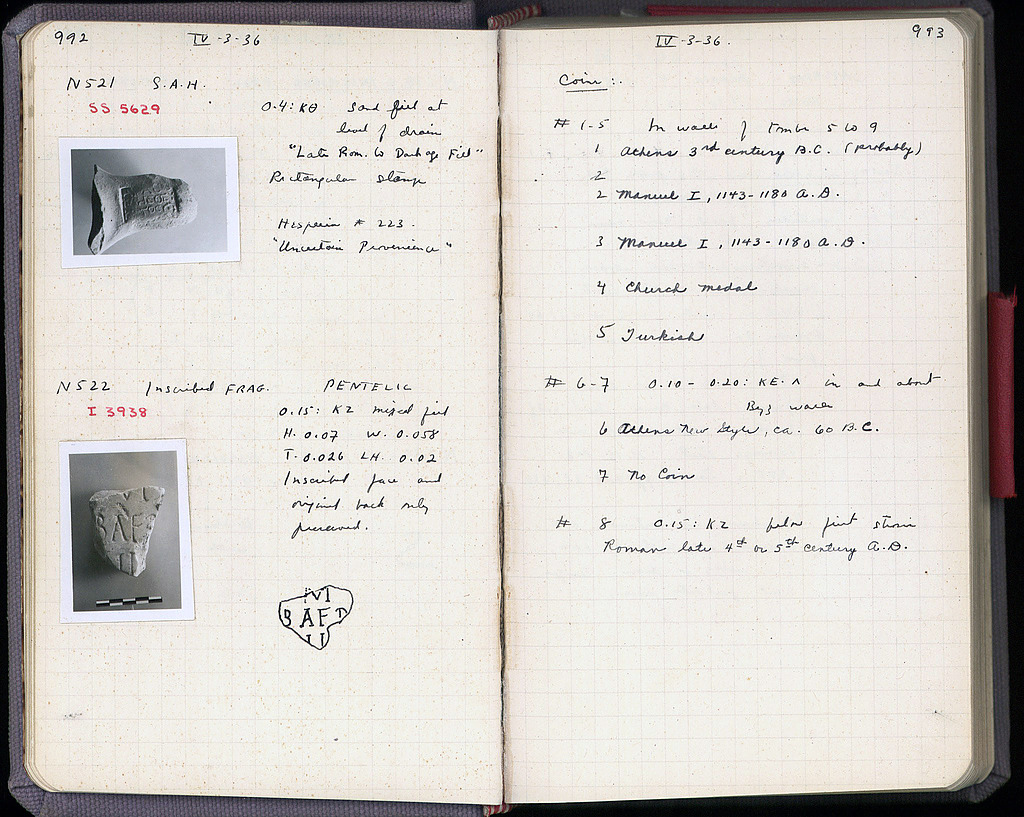 992
IV-3-36
N521 S.A.H.
SS 5629
0.4: KΘ Sand fill at
level of drain
"Late Rom. to Dark age Fill"
Rectangular stamp
Hesperia # 223.
"Uncertain Provenience"
N522 Inscribed FRAG. PENTELIC
I 3938
0.15: KZ mixed fill
H. 0.07 W. 0.058
T. 0.026 LH. 0.02
Inscribed face and
original back only
preserved.
BAF
993
IV-3-36.
Coins:.
# 1-5 In walls of tombs 5 to 9
1 Athens 3rd century B.C. (probably)
2
2 Manuel I, 1143-1180 A.D.
3 Manuel I, 1143-1180 A.D.
4 Church medal
5 Turkish
# 6-7 0.10 - 0.20: KE·Λ in and about
Byz walls
6 Athens New Style, ca. 60 B.C.
7 No Coin
# 8 0.15: KZ below first
Roman late 4th or 5th century A.D.